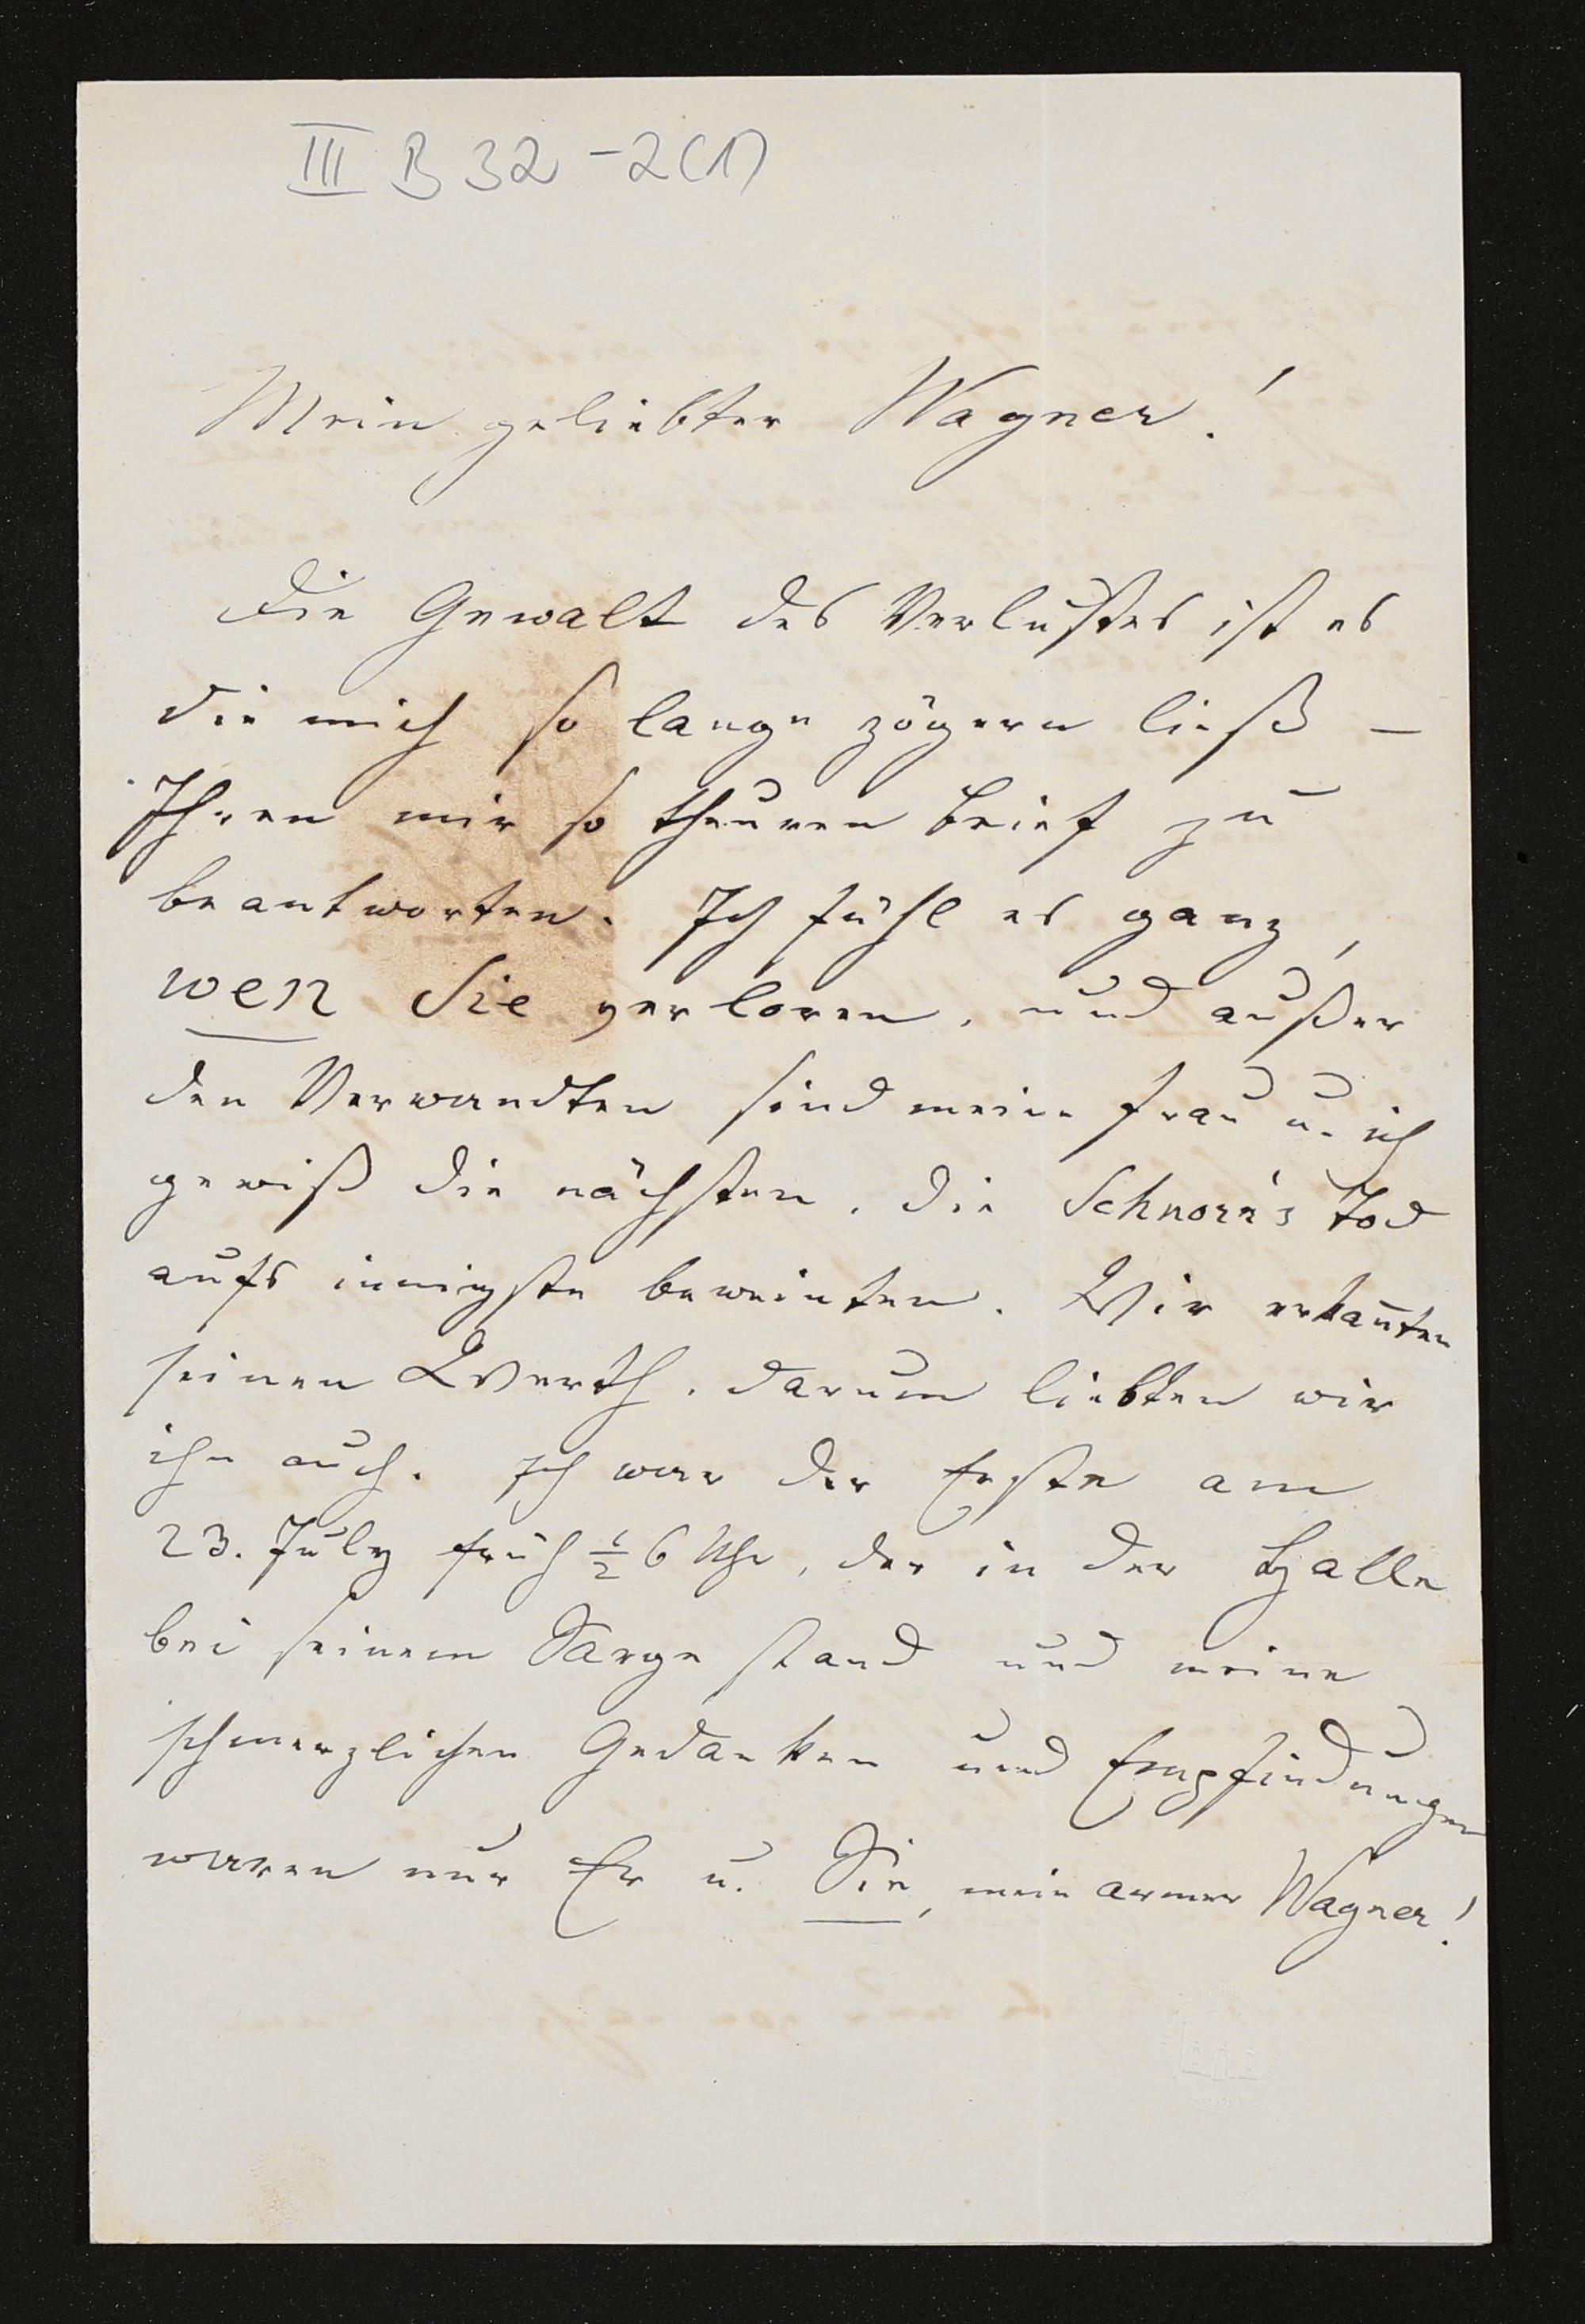 III B 32-2(1)
Mein geliebter Wagner!
Die Gewalt des Verlustes ist es
die mich so lange zögern ließ –
Ihren mir so theuren Brief zu
beantworten. Ich fühl es ganz,
wen Sie verloren, und außer
den Verwandten sind meine Frau u. ich
gewiß die nächsten, die Schnorr's Tod
aufs innigste beweinten. Wir erkan̄ten
seinen Werth, darum liebten wir
ihn auch. Ich war der Erste am
23. July früh ½ 6 Uhr, der in der Halle
bei seinem Sarge stand und meine
schmerzlichen Gedanken und Empfindungen
waren nur Er u. Sie, mein armer Wagner!